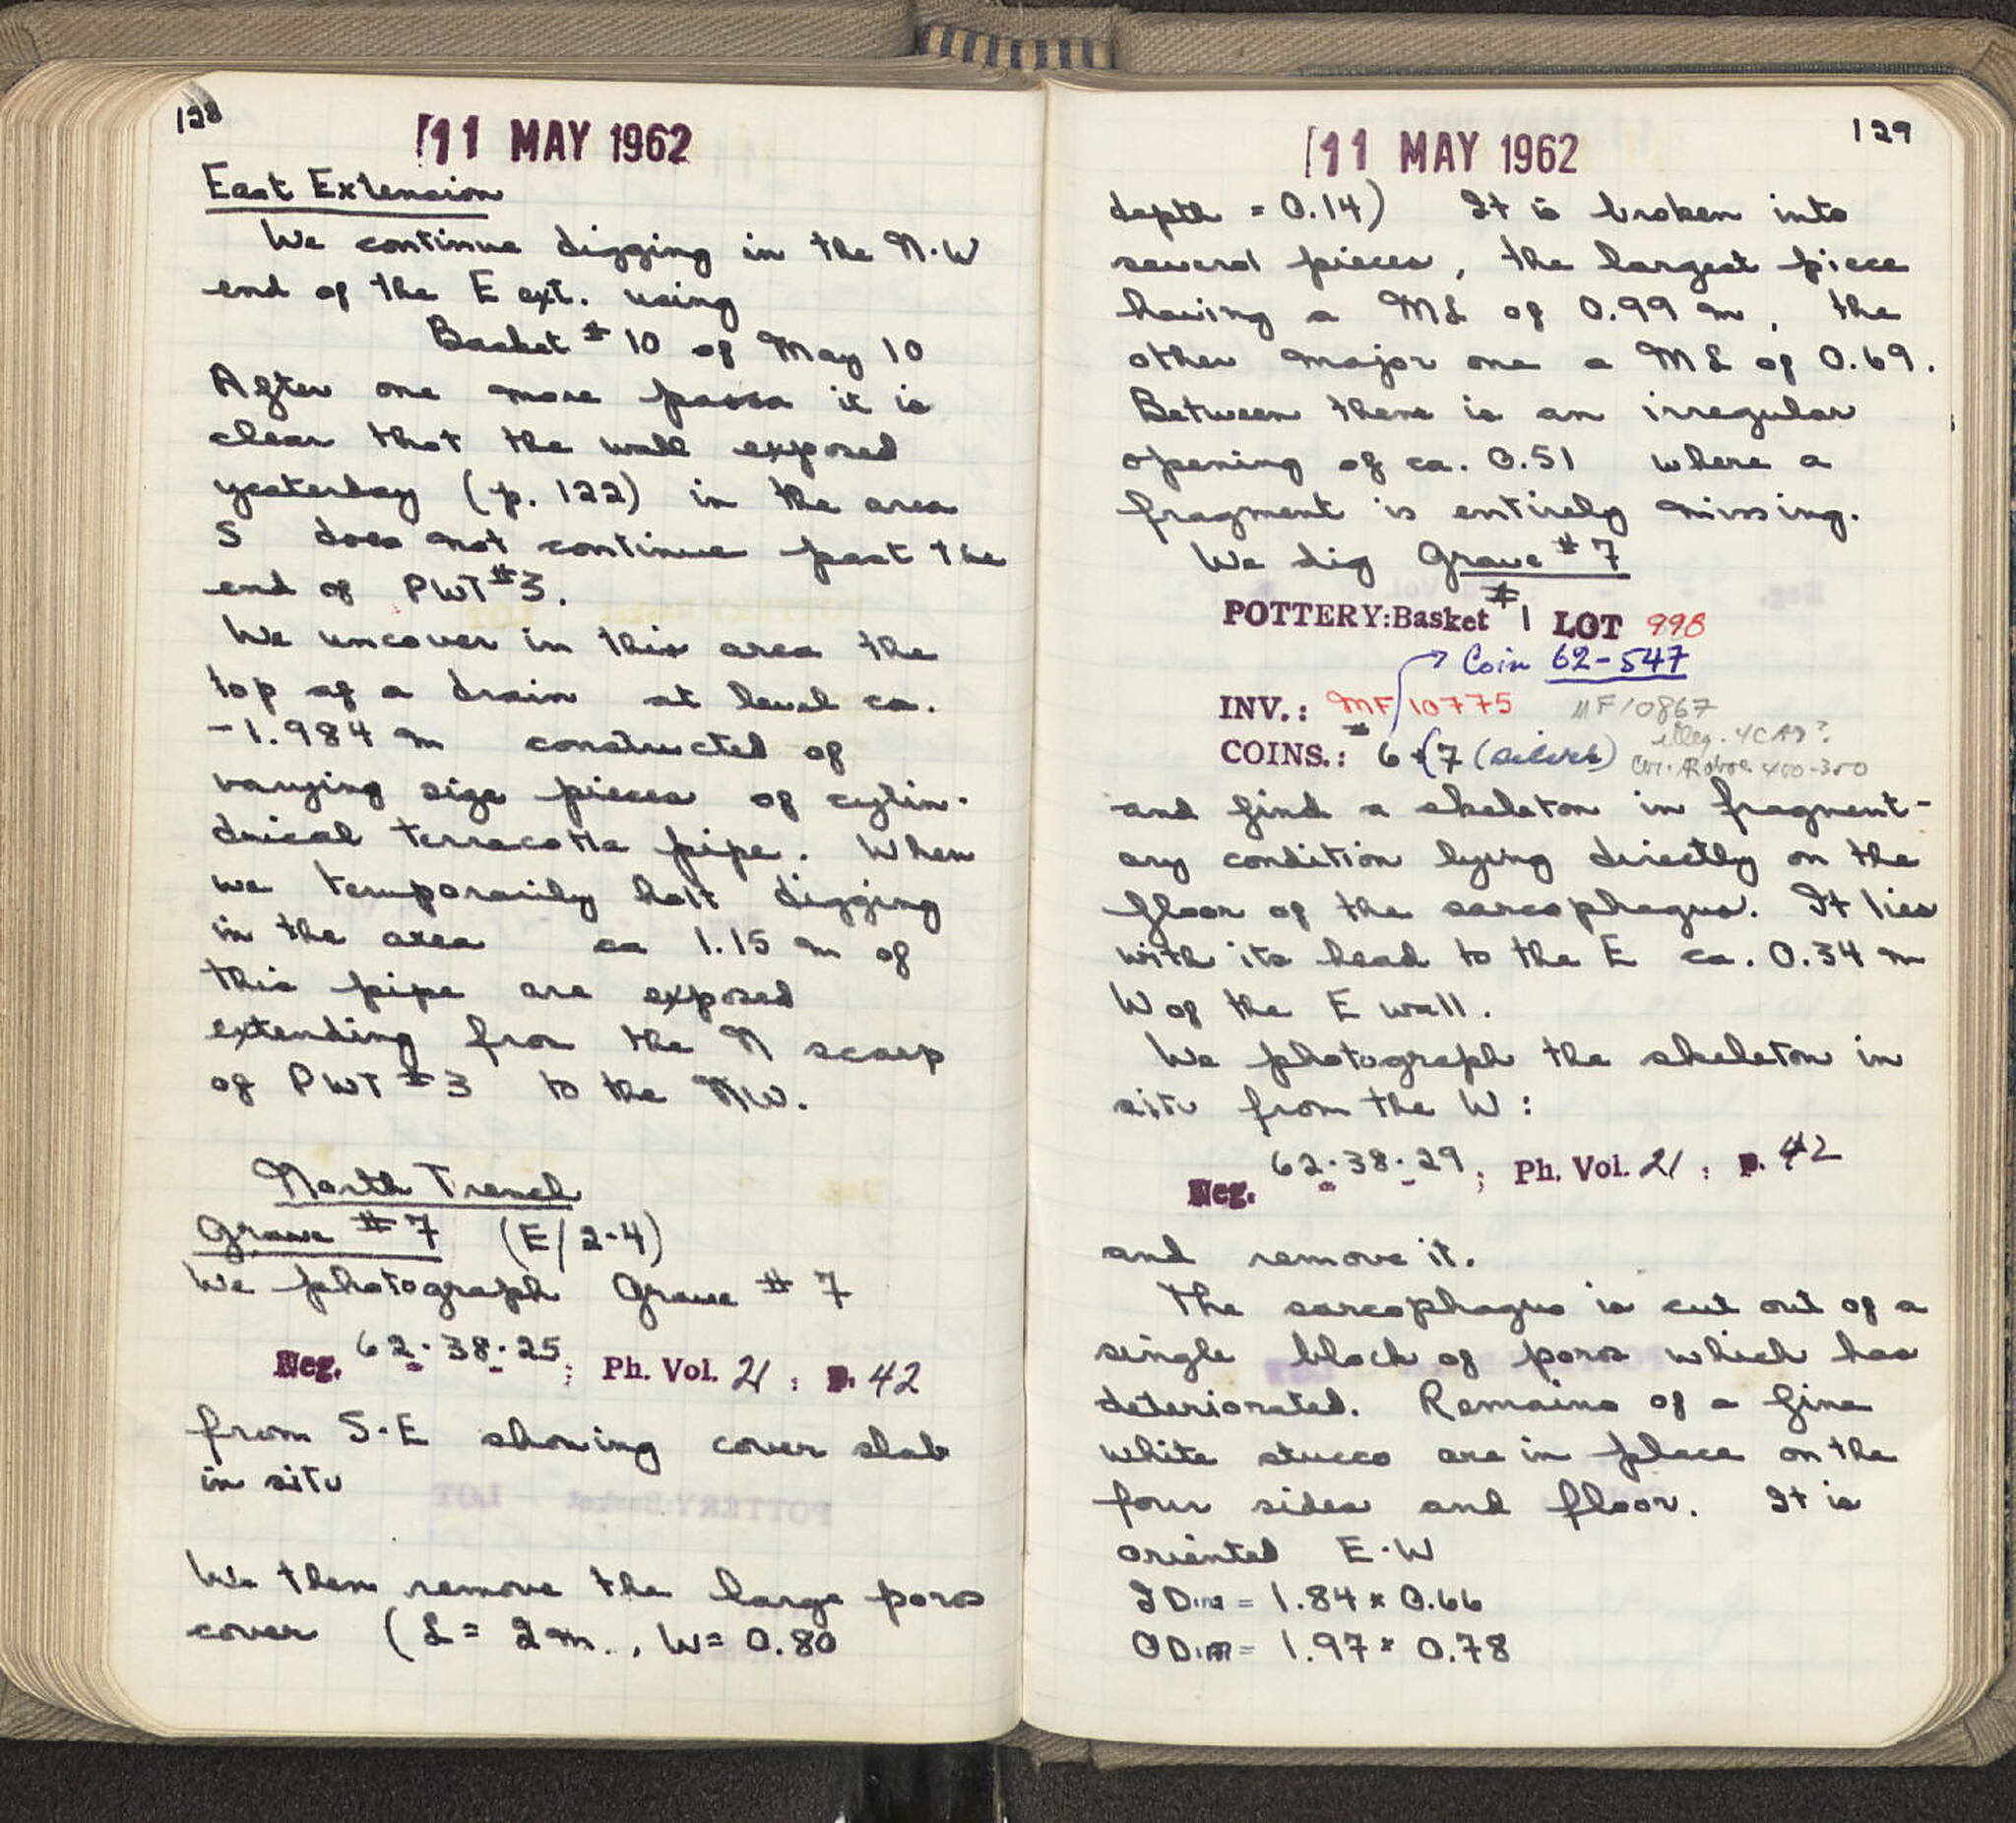 128
11 MAY 1962
East Extension
We continue digging in the N.W
end of the E ext. using
Basket #10 of May 10
After one more passa it is
clear that the wall exposed
yesterday (p. 122) in the area
S does not continue past the
end of PWT #3.
We uncover in this area the
top of a drain at level ca.
-1.984 m constructed of
varying size pieces of cylin-
drical terracotta pipe. When
we temporarily halt digging
in the area ca 1.15 m of
this pipe are exposed
extending from the N scarp
of PWT #3 to the NW.
North Trench
Grave #7 (E/2-4)
We photograph Grave #7
Neg. 62-38-25; Ph. Vol. 21: p. 42
from S-E showing cover slab
in situ
We then remove the large poros
cover (L = 2m., W = 0.80
129
11 MAY 1962
depth = 0.14) It is broken into
several pieces, the largest piece
having a ML of 0.99 m, the
other major one a ML of 0.69.
Between there is an irregular
opening of ca. 0.51 where a
fragment is entirely missing.
We dig Grave #7
POTTERY: Basket #1 LOT 998
Coin 62-547
INV.: MF 10775 MF 10867
COINS.: # 6 + 7 (silver) illeg. 4C AD?
400-350
and find a skeleton in fragment-
ary condition lying directly on the
floor of the sarcophagus. It lies
with its head to the E ca. 0.34 m
W of the E wall.
We photograph the skeleton in
situ from the W:
Neg. 62-38-29; Ph. Vol. 21: p. 42
and remove it.
The sarcophagus is cut out of a
single block of poros which has
deteriorated. Remains of a fine
white stucco are in place on the
four sides and floor. It is
oriented E-W
I Dim = 1.84 x 0.66
O Dim = 1.97 x 0.78